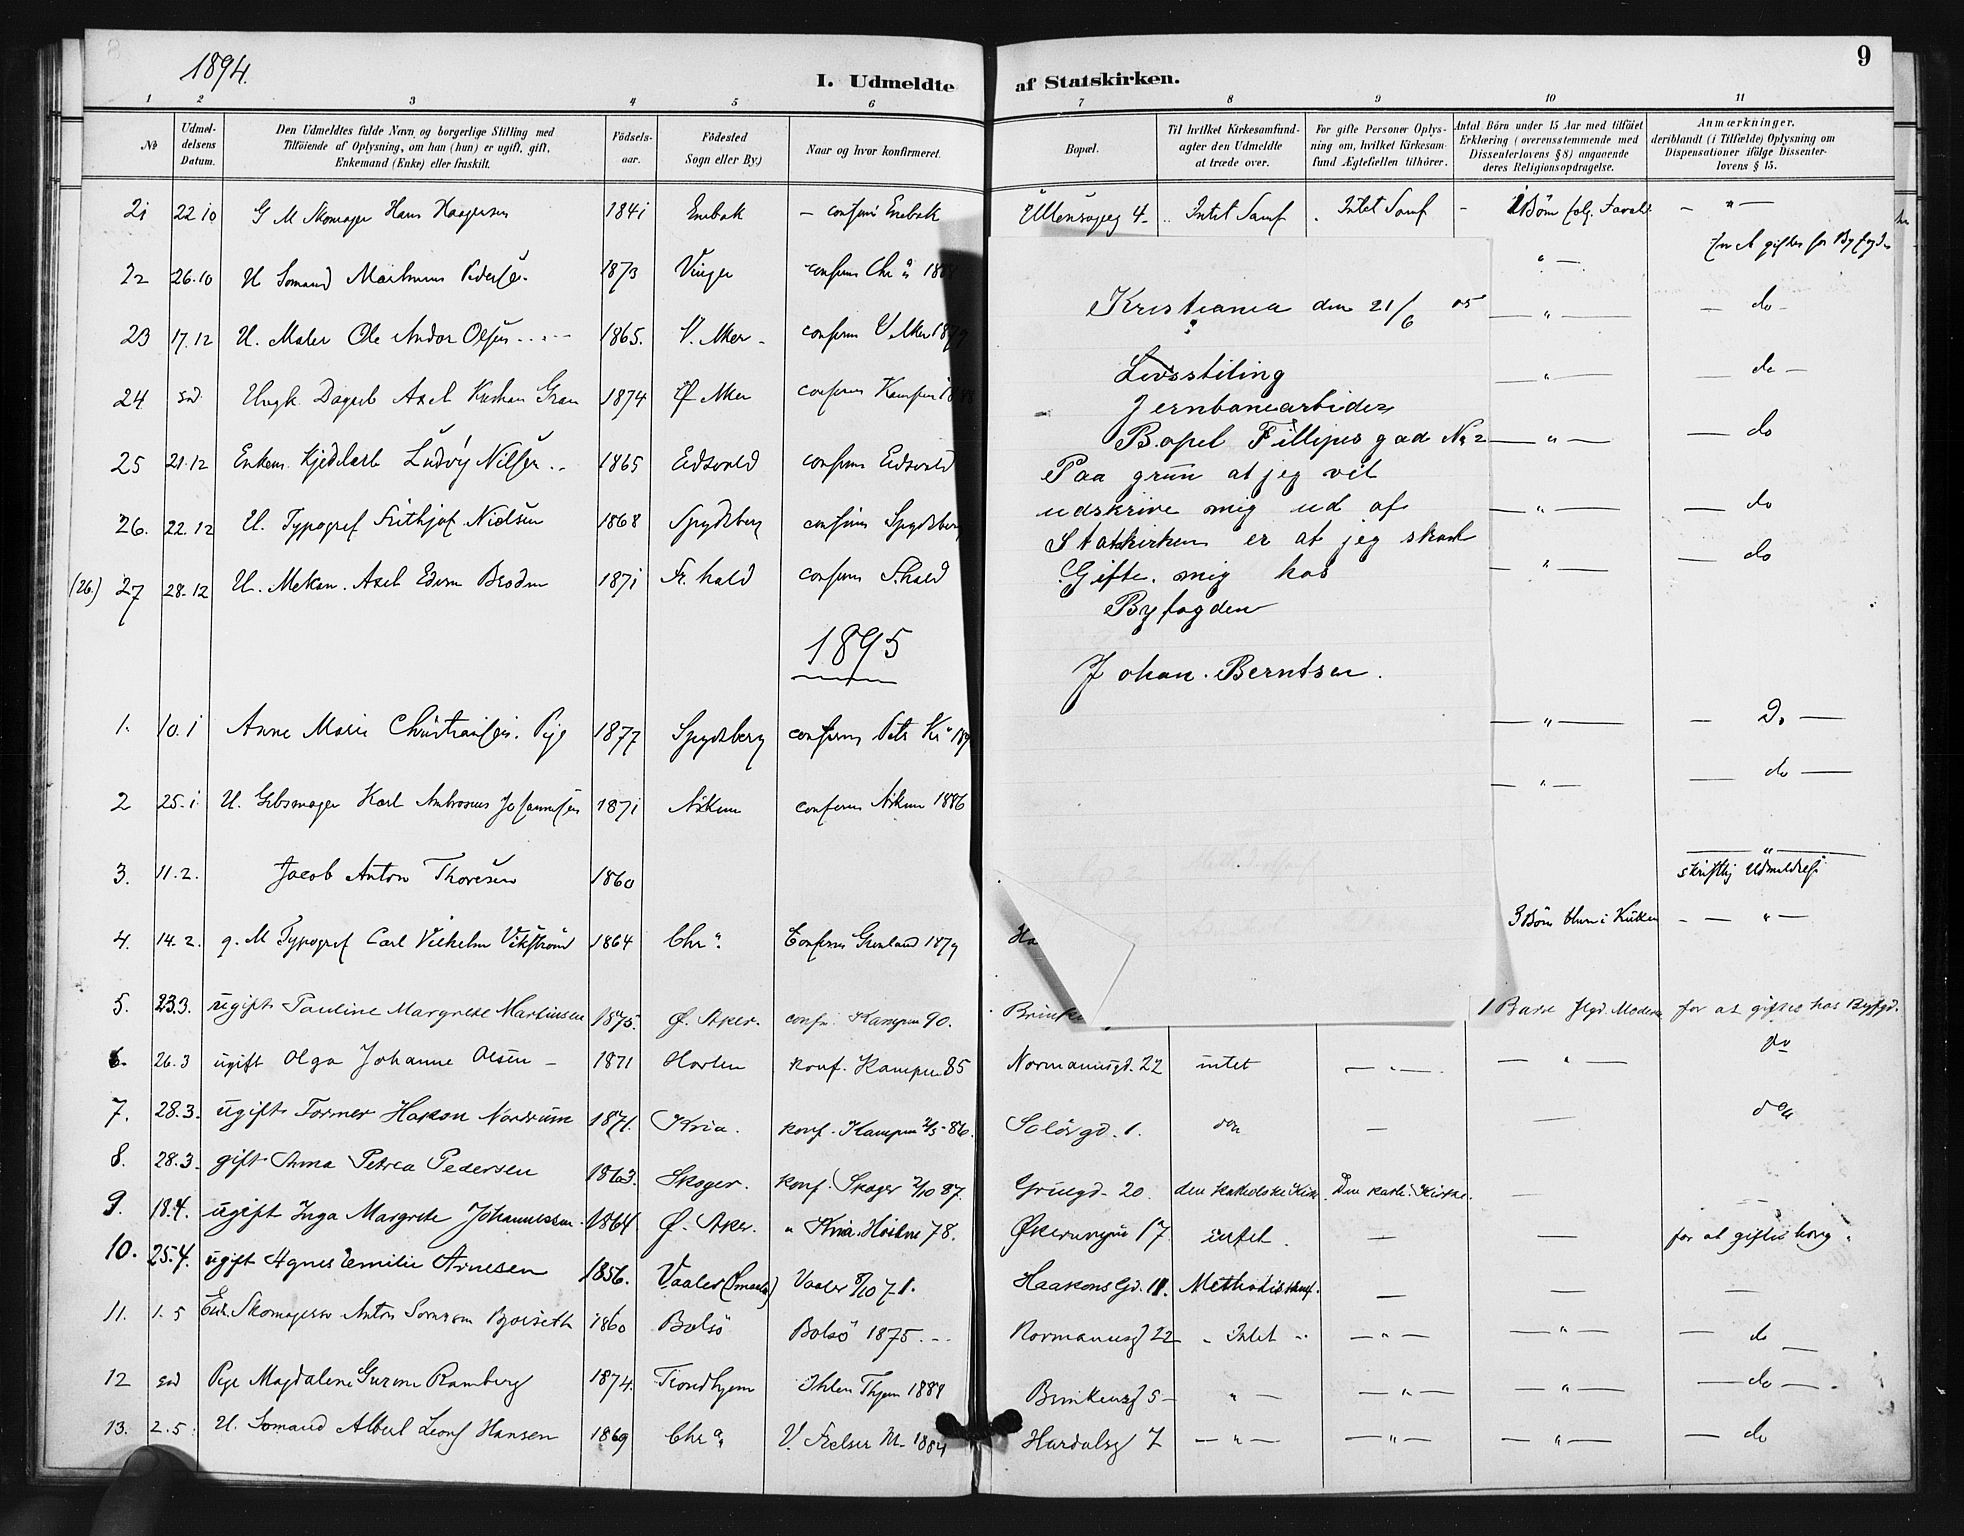 8
1894.
9
I. Udmeldte af Statskirken.
1 2 3 4 5 6 7 8 9 10 11
No
Udmeldelsens Datum.
Den Udmeldtes fulde Navn og borgerlige Stilling med Tilföiende af Oplysning, om han (hun) er ugift, gift, Enkemand (Enke) eller fraskilt.
Födselsaar.
Födested Sogn eller By.)
Naar og hvor konfirmeret.
Bopæl.
Til hvilket Kirkesamfund agter den Udmeldte at træde over.
For gifte Personer Oplysning om, hvilket Kirkesamfund Ægtefællen tilhörer.
Antal Börn under 15 Aar med tilföiet Erklæring (overensstemmende med Dissenterlovens § 8) angaaende deres Religionsopdragelse.
Anmærkninger, deriblandt (i Tilfælde) Oplysning om Dispensationer ifölge Dissenterlovens § 15.
21 22 10 G M Skomager Hans 1841 Enebak – confirm Enebak Ullensagg 4 – Intet Samf Intet Samf – Börn – " –
22 26.10 U Sömand Pedersen. 1873 Vinger confirm Chr a " – for at giftes for Byfogd.
23 17.12 U. Maler Ole Andor Olsen 1865. V. Aker – confirm V Aker 1879 – " – – do –
24 sd. Ungk. Axel Gran 1874 Ø Aker confirm Kampen 1888 – " – – do –
25 21.12 Enkem. Ludvig Nilsen 1865 Eidsvold confirm Eidsvold – " – – do
26. 22.12 U. Typograf Frithjof Nielsen 1868 Spydeberg confirm Spydeberg – " – – do
(26.) 27 28.12 U. Mekan. Axel 1871 Fr. hald confirm F.hald – " – – do
Kristiania den 21/6 05
Livsstiling
Jernbanearbider
Bopel Fillipus gad No 2
Paa grun at jeg vil
udskrive mig ud af
Statskirken er at jeg skal
Gifte mig hos
Byfogden
Johan. Berntsen.
1895
1. 10.1 Anne Marie Christiansen. Pige 1877 Spydeberg confirm Petr K – " – – Do –
2 25.1 U. Karl Ambrosius Johannesen 1871 Askim confirm Askim 1886 – " – – do –
3. 11.2. Jacob Anton Thoresen 1860 – " – skriftlig Udmeldelse
4. 14.2. g. M Typograf Carl Vilhelm Vikström 1864 Chr a. Confirm Grönland 1879 Ha 3 Börn i Kirken – " –
5. 23.3. ugift Pauline Margrete Martinsen 1875. Ø. Aker. conf. Kampen 90. Brink 1 Barn flgd. Moderen for at giftes hos Byfgd.
6. 26.3 ugift Olga Johanne Olsen – 1871 Horten konf. Kampen 85 Normannsgd. 22 intet – " – – " – do
7. 28.3. ugift Tormer Hakon Nordrum 1871. Kria. konf. Kampen 2/5 – 86. Solörgd. 1. do – – do
8. 28.3. gift Anna Petrea Pedersen 1863. Skoger. konf. Skoger 2/10 87. Grüngd. 20. den Katholske Kirke. Den kath. Kirke. –
9. 18.4. ugift Inga Margrete Johannessen 1864 Ø. Aker. " Kria. 78. Økernveien 17 intet. – – for at giftes borg.
10. 25.4. ugift Agnes Emilie Arnesen 1856. Vaaler (Smaal) Vaaler 8/10 71. Haakons Gd. 11. Methodistsamf. – – –
11. 1.5 Skomagersv Anton Bjorseth 1860 Bolsö Bolsö 1875. – Normannsg 22 – Intet – – " – – " – – do –
12 sd Pige Magdalene Gurine Ramberg 1874. Trondhjem Ihlen Thjem 1888 Brinkensg 5 – " – – " – – " – – do –
13. 2.5. U. Sömand Albert Leonf Hansen 1869 Chr a. V. Frelser M. 1884 Hardalsg 7 – " – – " – – " – – do